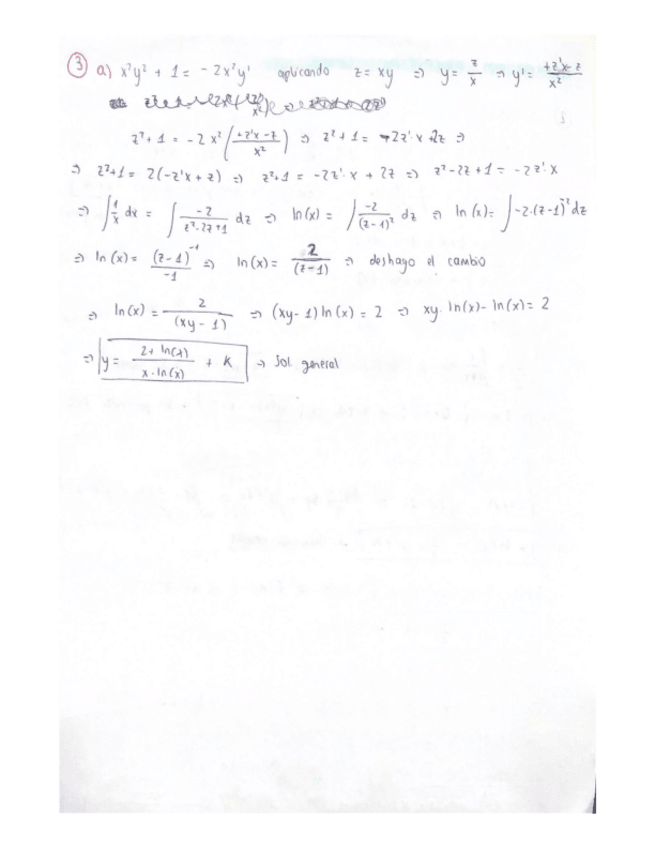 ③ a) x²y² + 1 = -2x²y' aplicando z = xy ⇒ y = z/x ⇒ y' = +z'x-z/x²
z² + 1 = -2x² (+z'x-z/x²) ⇒ z² + 1 = -2z'·x + 2z ⇒
⇒ z²+1 = 2(-z'x + z) ⇒ z²+1 = -2z'·x + 2z ⇒ z²-2z+1 = -2z'·x
⇒ ∫ 1/x dx = ∫ -2/z²-2z+1 dz ⇒ ln(x) = ∫ -2/(z-1)² dz ⇒ ln(x) = ∫ -2·(z-1)⁻² dz
⇒ ln(x) = (z-1)⁻¹/-1 ⇒ ln(x) = 2/(z-1) ⇒ deshago el cambio
⇒ ln(x) = 2/(xy-1) ⇒ (xy-1) ln(x) = 2 ⇒ xy·ln(x) - ln(x) = 2
⇒ y = 2+ln(x)/x·ln(x) + K → Sol. general